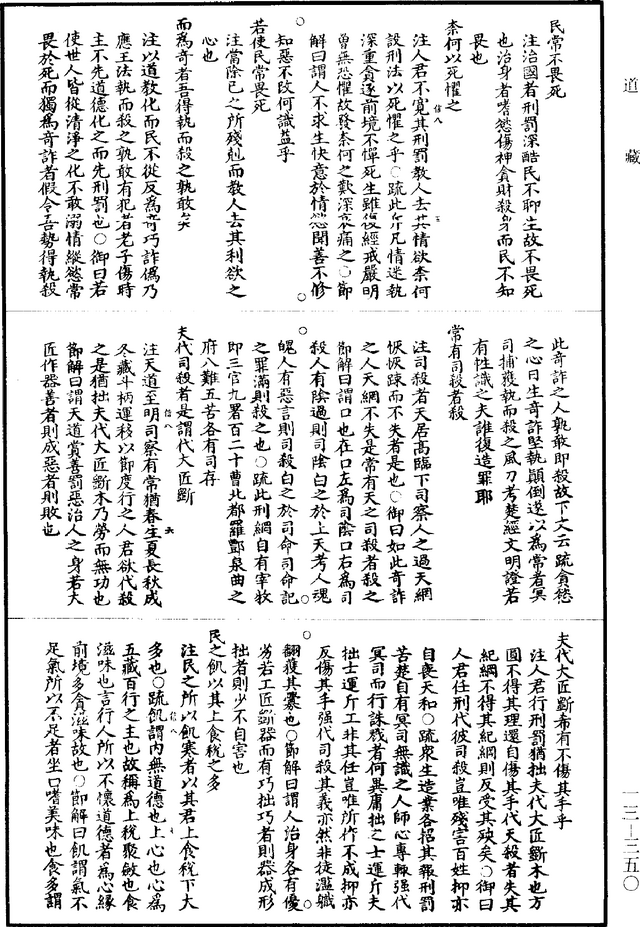 道藏
民常不畏死
注治國者刑罰深酷民不聊生故不畏死
也治身者嗜慾傷神貪財殺身而民不知
畏也
柰何以死懼之
注人君不寬其刑罰教人去其情欲柰何
設刑法以死懼之乎○疏此斥凡情迷執
深重貪逐前境不憚死生雖復經戒嚴明
曾無恐懼故發柰何之歎深哀痛之○節
解曰謂人不求生快意於情慾聞善不修
知惡不改何識益乎
若使民常畏死
注當除已之所殘尅而教人去其利欲之
心也
而為奇者吾得執而殺之孰敢矣
注以道教化而民不從反為奇巧詐僞乃
應王法執而殺之孰敢有犯者老子傷時
主不先道德化之而先刑罰也○御曰若
使世人皆從清淨之化不敢溺情縱慾常
畏於死而獨為奇詐者假令吾勢得執殺
此奇詐之人孰敢即殺故下文云疏貪慾
之心日生奇詐堅執顛倒遂以為常者冥
司捕獲執而殺之風刀考楚經文明證若
有性識之夫誰復造罪耶
常有司殺者殺
注司殺者天居高臨下司察人之過天網
恢恢踈而不失者是也○御曰如此奇詐
之人天網不失是常有天之司殺者殺之
節解曰謂口也在口左為司陰口右為司
殺人有陰過則司陰白之於上天考人魂
魄人有惡言則司殺白之於司命司命記
之罪滿則殺之也○疏此刑網自有宰牧
即三官九署百二十曹北都羅酆泉曲之
府八難五苦各有司存
夫代司殺者是謂代大匠斵
注天道至明司察有常猶春生夏長秋成
冬藏斗柄運移以節度行之人君欲代殺
之是猶拙夫代大匠斵木乃勞而無功也
節解曰謂天道賞善罰惡治人之身若大
匠作器善者則成惡者則敗也
夫代大匠斵希有不傷其手乎
注人君行刑罰猶拙夫代大匠斵木也方
圓不得其理還自傷其手代天殺者失其
紀綱不得其紀綱則反受其殃矣○御曰
人君任刑代彼司殺豈唯殘害百姓抑亦
自喪天和○疏衆生造業各招其報刑罰
苦楚自有冥司無識之人師心專輒强代
冥司而行誅戮者何異庸拙之士運斤夫
拙士運斤工非其任豈唯所作不成抑亦
反傷其手强代司殺其義亦然非徒濫軄
翻獲其釁也○節解曰謂人治身各有優
劣若工匠斵器而有巧拙巧者則器成形
拙者則少不自害也
民之飢以其上食稅之多
注民之所以飢寒者以其君上食稅下大
多也○疏飢謂內無道德也上心也心為
五藏百行之主也故稱為上稅聚斂也食
滋味也言行人所以不懷道德者為心緣
前境多貪滋味故也○節解曰飢謂氣不
足氣所以不足者坐口嗜美味也食多謂
一三—三五〇